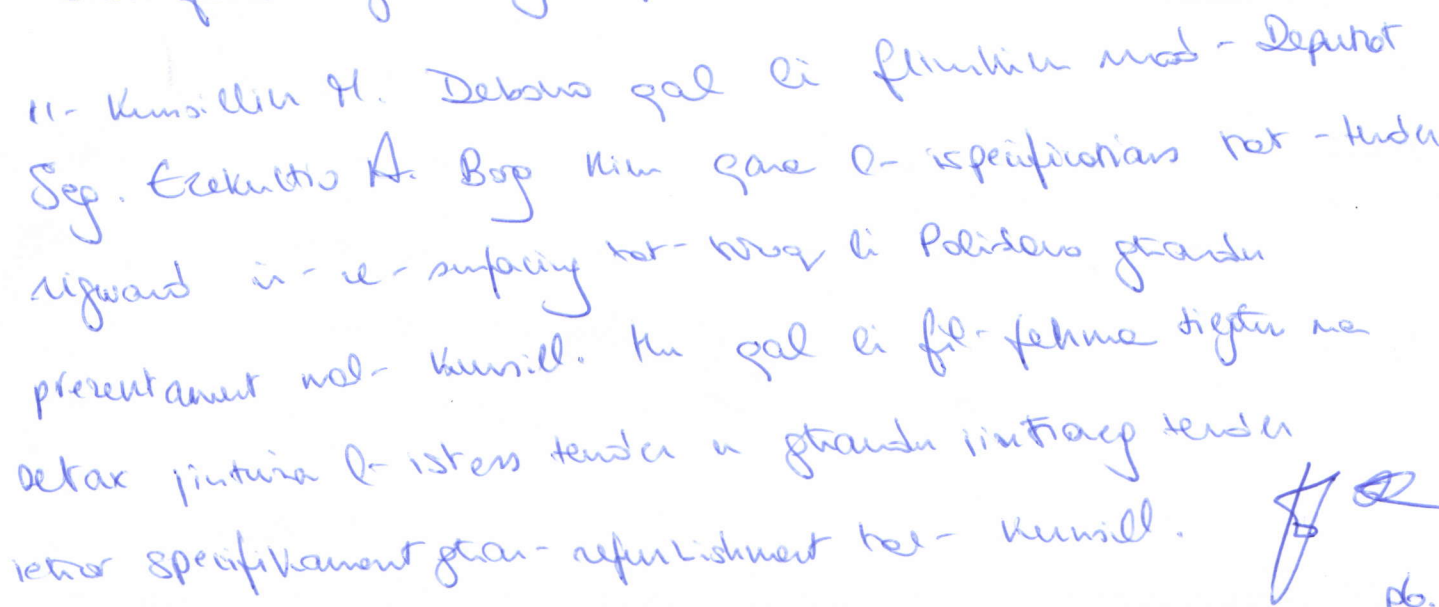 Il-Kunsillier M. Debono qal li flimkien mad-Deputat
Seg. Eżekuttiv A. Borg kien qara l-ispecifications tat-tender
rigward ir-re-surfacing tat-toroq li Polidano għandu
preżentament mal-Kunsill. Hu qal li fil-fehma tiegħu ma
setax jintuża l-istess tender u għandu jintħareġ tender
ieħor speċifikament għar-refurbishment tal-Kunsill.